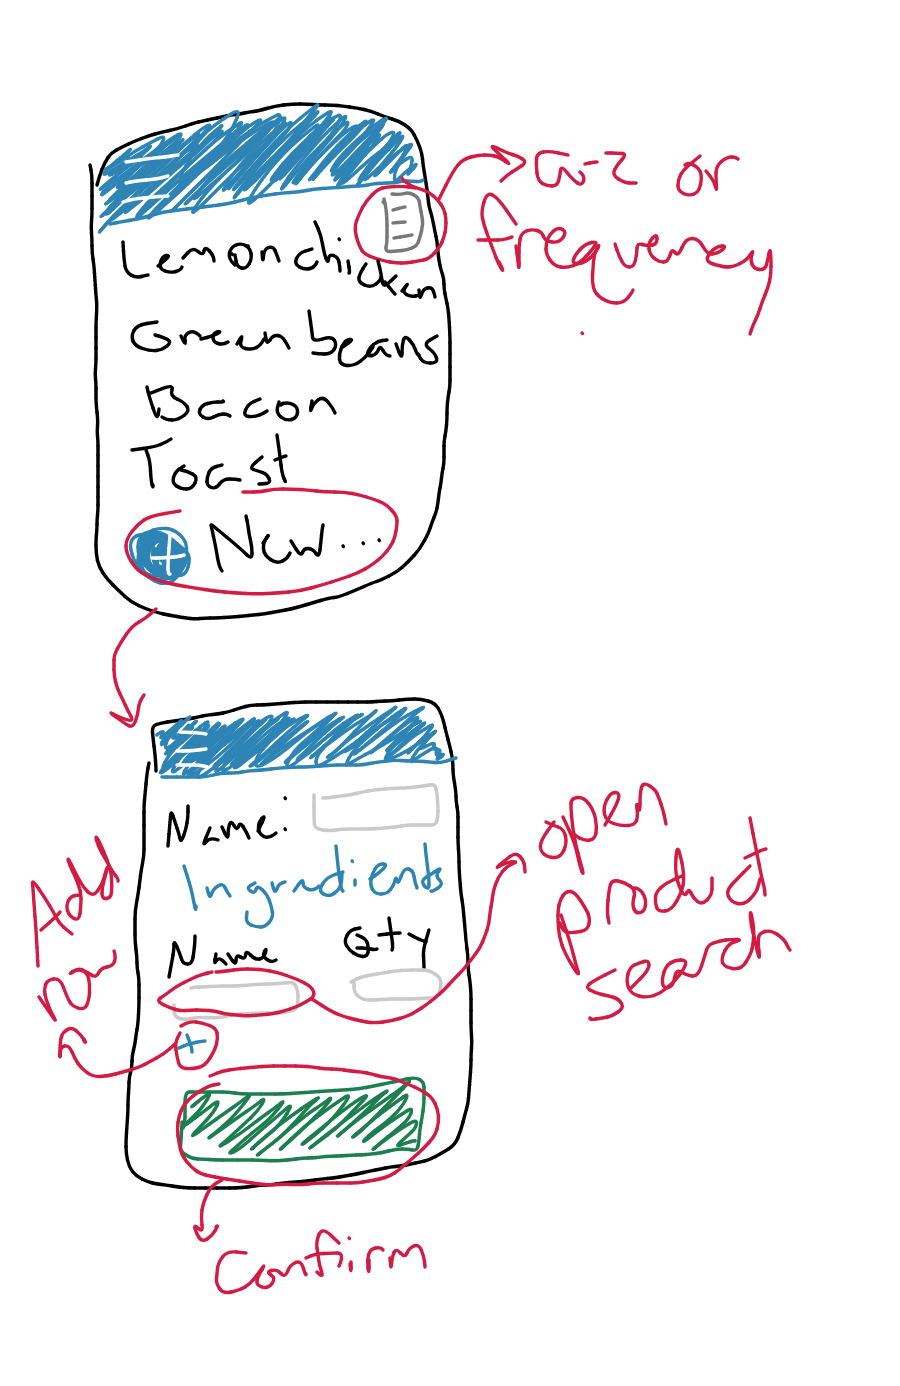 a-z or
frequency
Lemon chicken
Green beans
Bacon
Toast
+ New...
Name:
Ingredients
Name Qty
+
Add
row
open
product
search
Confirm